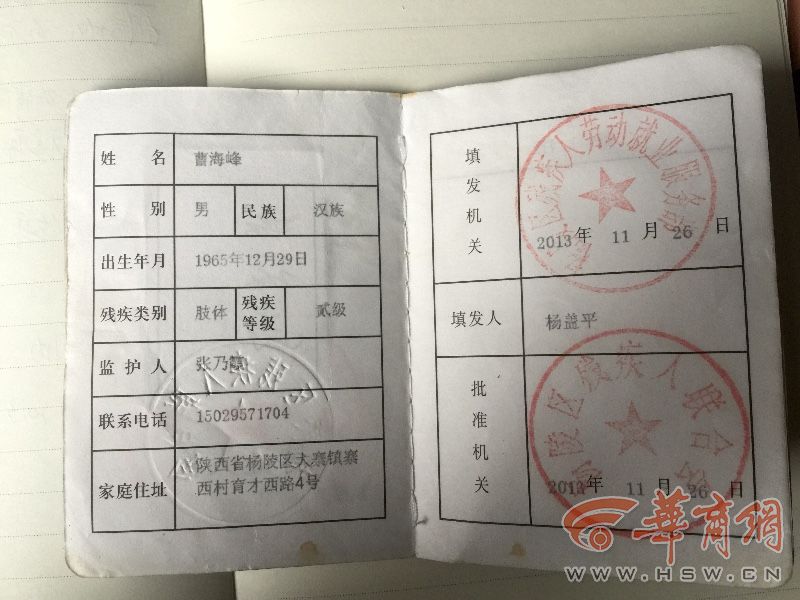 姓 名 曹海峰
性 别 男 民族 汉族
出生年月 1965年12月29日
残疾类别 肢体 残疾等级 贰级
监护人 张乃
联系电话 15029571704
家庭住址 陕西省杨陵区大寨镇寨
西村育才西路4号
填发机关
区残疾人劳动就业服务
2013 年 11 月 26 日
填发人 杨盖平
批准机关
陵区残疾人联合会
2013 年 11 月 26 日
華商網
WWW.HSW.CN